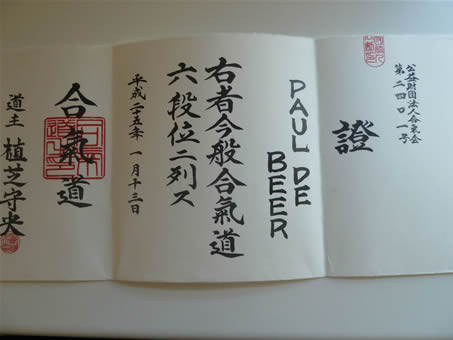 公益財団法人合気会
第二四〇一号
證
PAUL DE
BEER
右者今般合氣道
六段位ニ列ス
平成二五年一月十三日
合氣道
道主 植芝守央